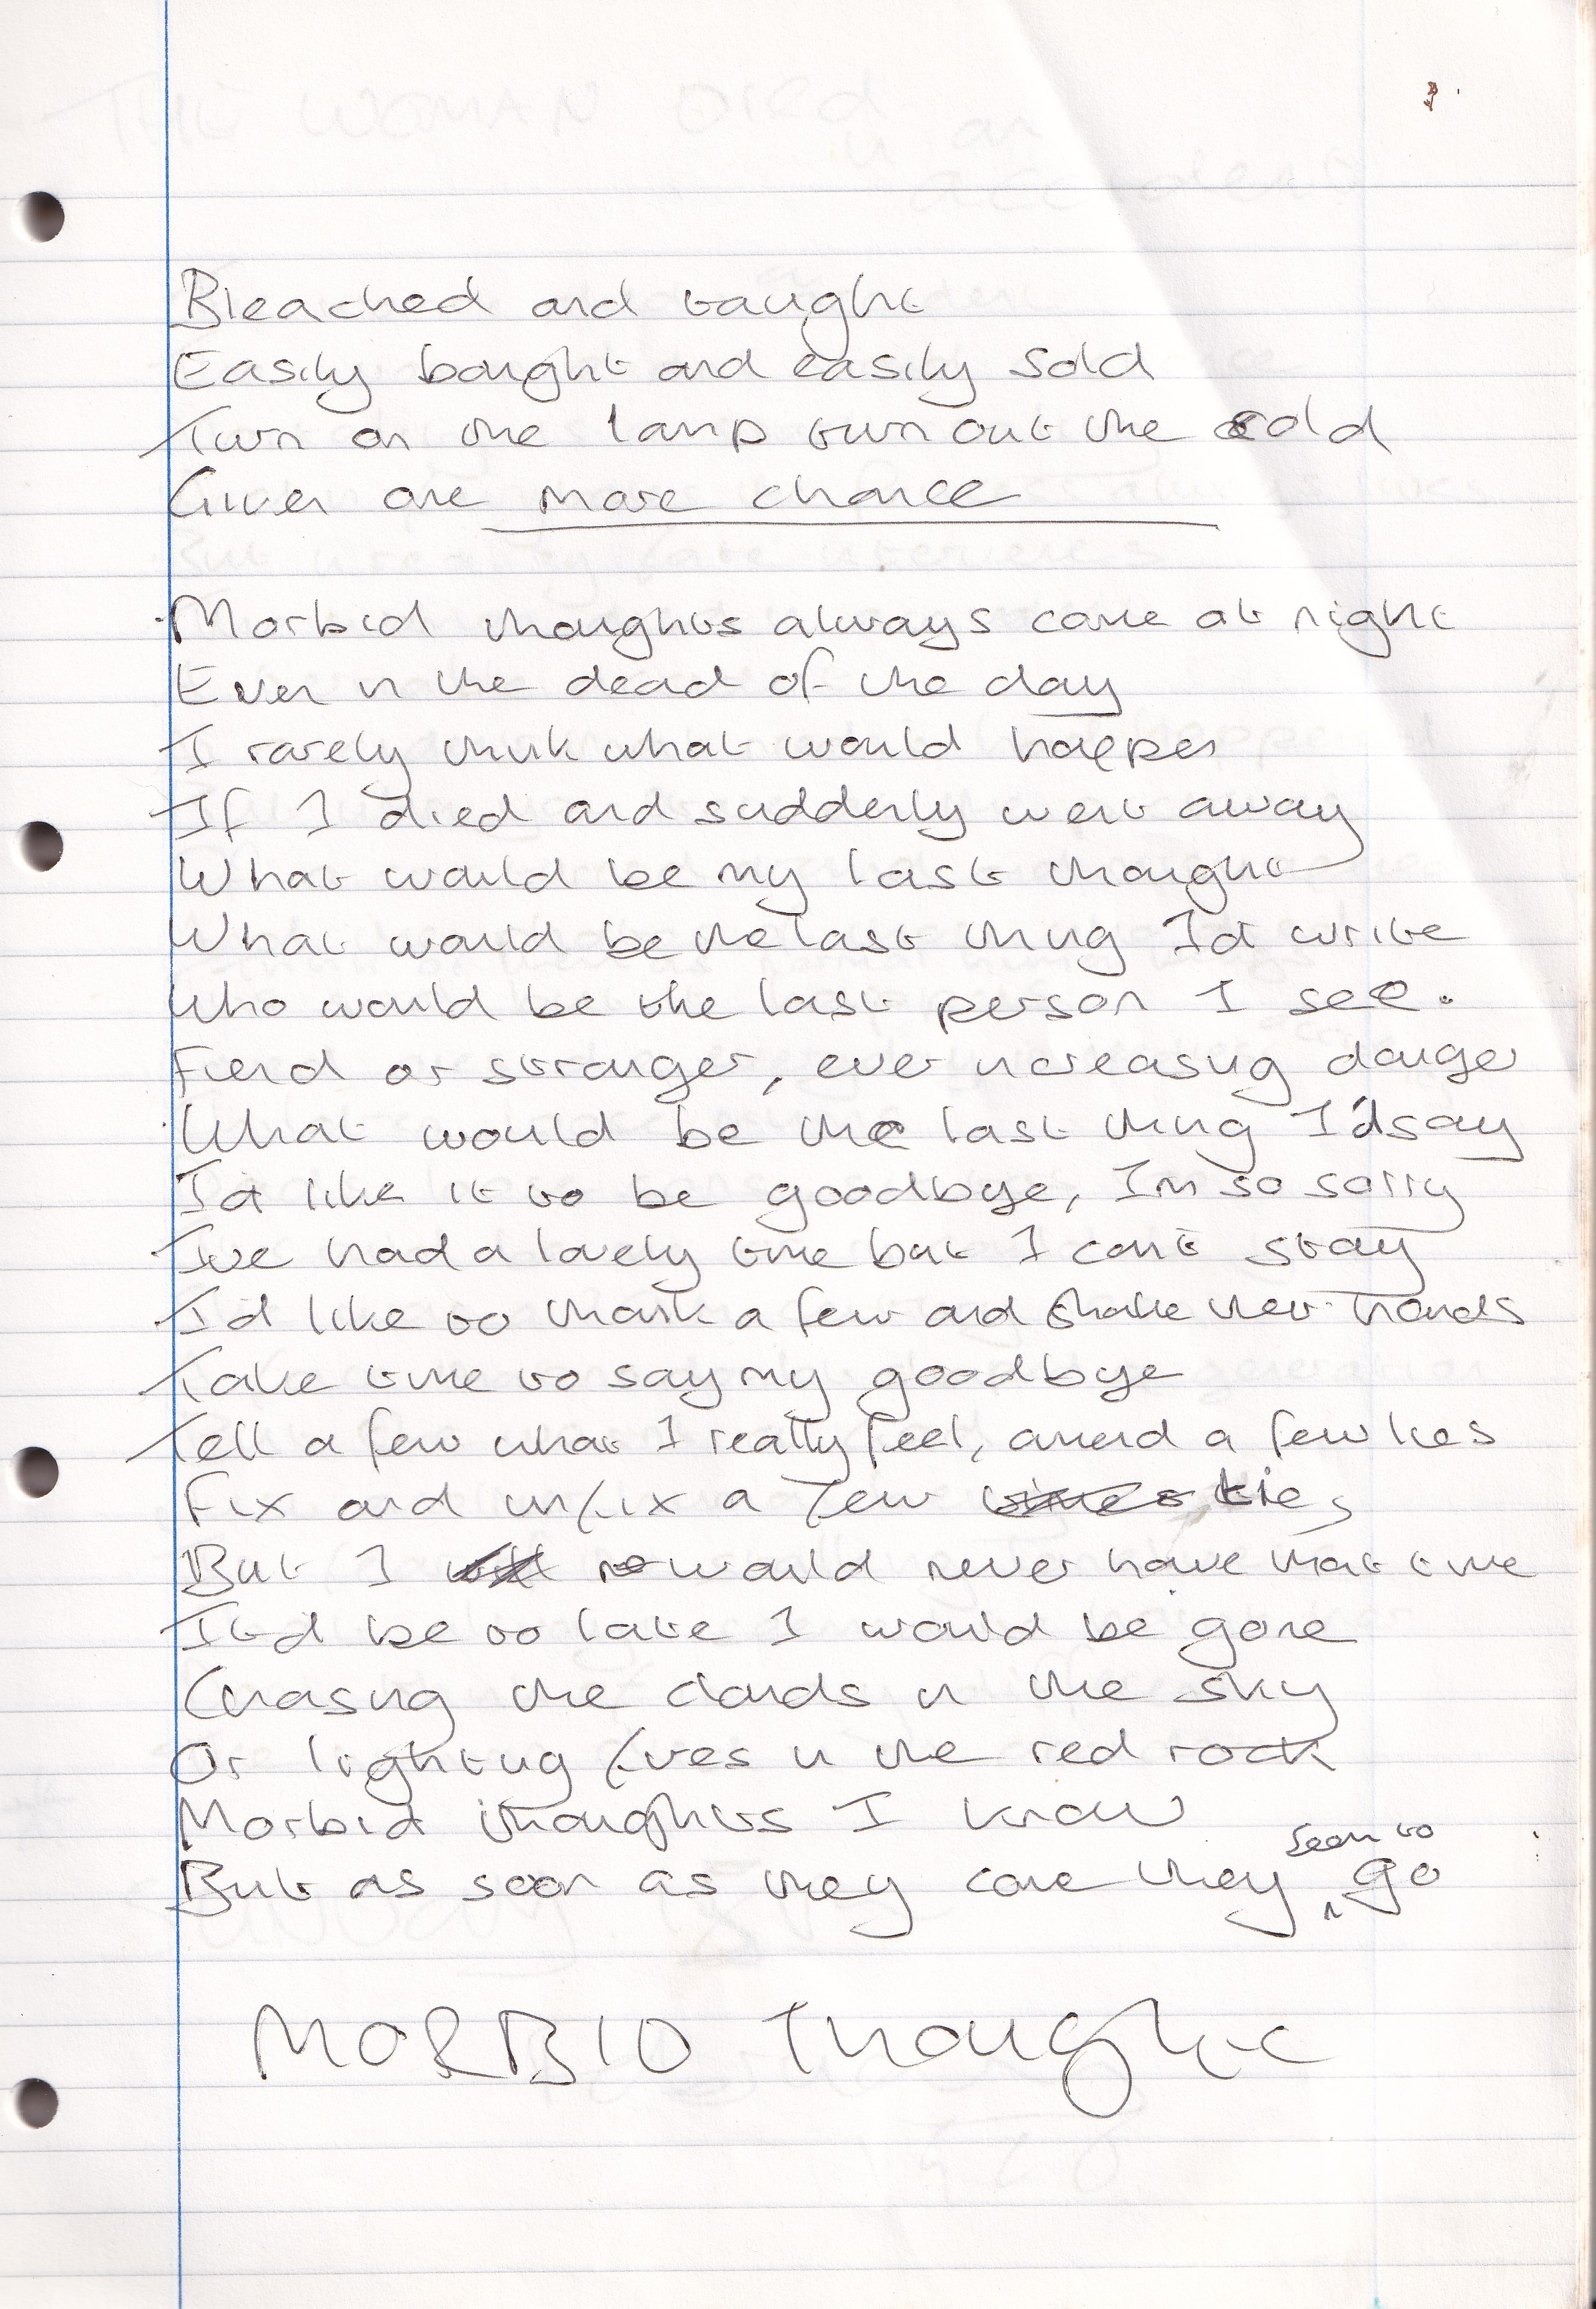 Bleached and taught
Easily bought and easily sold
Turn on the lamp turn out the cold
Given one more chance
Morbid thoughts always come at night
Even in the dead of the day
I rarely think what would happen
If I died and suddenly went away
What would be my last thought
What would be the last thing Id write
Who would be the last person I see.
Fiend or stranger, ever increasing danger
What would be the last thing I'd say
Id like it to be goodbye, Im so sorry
Ive had a lovely time but I can't stay
I'd like to thank a few and shake their hands
Take time to say my goodbye
Tell a few what I really feel, amend a few lies
Fix and unfix a few ties
But I would never have that time
Itd be to late I would be gone
Chasing the clouds in the sky
Or lighting fires in the red rock
Morbid thoughts I know
But as soon as they come they seem to go
MORBID Thought